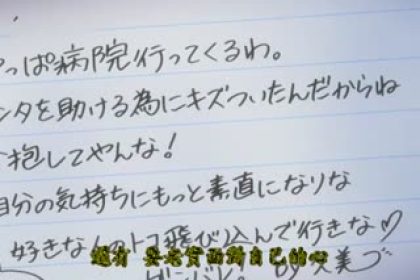 っぱ病院行ってくるわ。
ンタを助ける為にキズついたんだからね
抱してやんな!
自分の気持ちにもっと素直になりな
好きな人のトコ飛び込んで行きな♡
還有 要老實面對自己的心